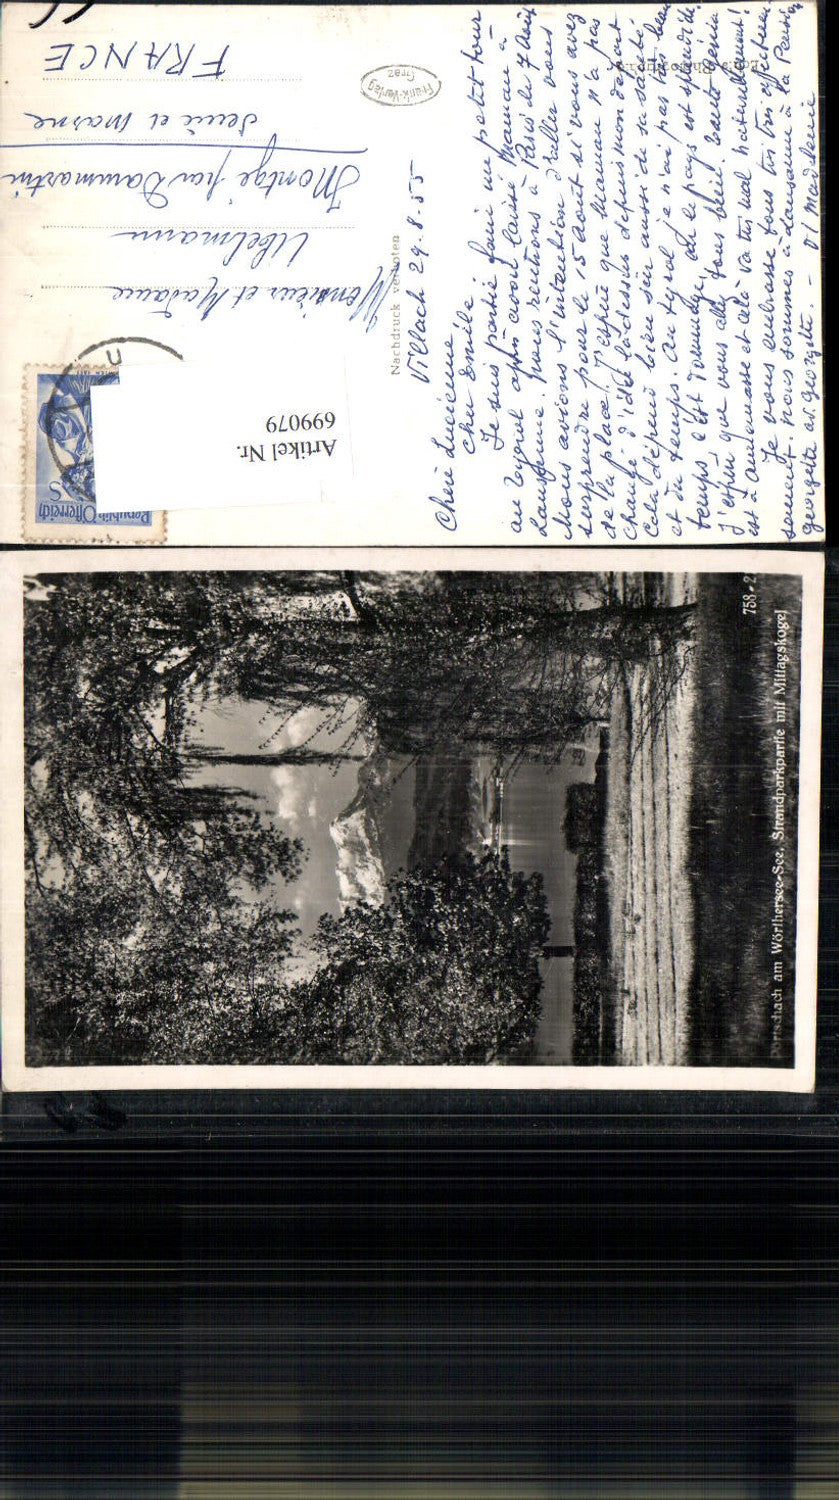 Villach 29.8.55
Chère Lucienne
Cher Emile.
Je suis partie faire un petit tour
au Tyrol après avoir laissé Maman à
Lausanne. nous rentrons à Paris le 7 Août
Nous avions l'intention d'aller vous
surprendre pour le 15 août si vous avez
de la place, j'espère que Maman n'a pas
changé d'idée là dessus depuis mon départ
Cela dépend bien sûr aussi de sa santé
et du temps. Au Tyrol je n'ai pas très beau
temps c'est dommage, car le pays est splendide.
J'espère que vous allez tous bien. Tante
est à et cela va très mal naturellement!
Je vous embrasse tous très affectueu
sement. nous sommes à Lausanne à la Pension
georgette av. georgette. - Vl Madeleine
Nachdruck verboten
Frank-Verlag
Graz
Monsieur et Madame
Ubelmann
Montgé par Dammartin
Seine et Marne
FRANCE
Republik Österreich
S
Artikel Nr.
699079
758-2
Pörtschach am Wörthersee-See, Strandparkpartie mit Mittagskogel